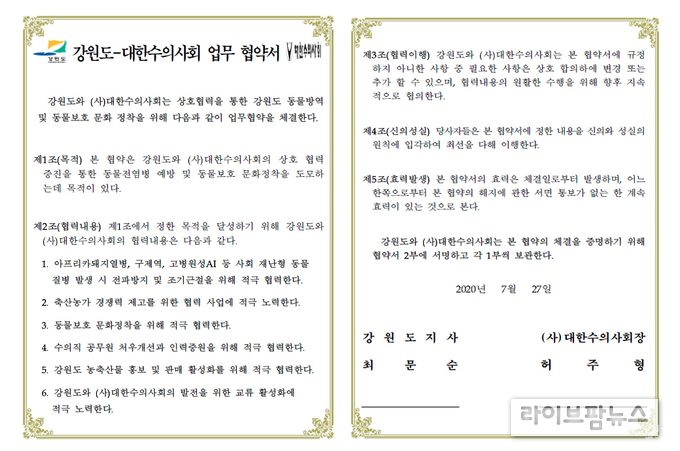 강원도
강원도-대한수의사회 업무 협약서
대한수의사회
강원도와 (사)대한수의사회는 상호협력을 통한 강원도 동물방역
및 동물보호 문화 정착을 위해 다음과 같이 업무협약을 체결한다.
제1조(목적) 본 협약은 강원도와 (사)대한수의사회의 상호 협력
증진을 통한 동물전염병 예방 및 동물보호 문화정착을 도모하
는데 목적이 있다.
제2조(협력내용) 제1조에서 정한 목적을 달성하기 위해 강원도와
(사)대한수의사회의 협력내용은 다음과 같다.
1. 아프리카돼지열병, 구제역, 고병원성AI 등 사회 재난형 동물
질병 발생 시 전파방지 및 조기근절을 위해 적극 협력한다.
2. 축산농가 경쟁력 제고를 위한 협력 사업에 적극 노력한다.
3. 동물보호 문화정착을 위해 적극 협력한다.
4. 수의직 공무원 처우개선과 인력증원을 위해 적극 협력한다.
5. 강원도 농축산물 홍보 및 판매 활성화를 위해 적극 협력한다.
6. 강원도와 (사)대한수의사회의 발전을 위한 교류 활성화에
적극 노력한다.
제3조(협력이행) 강원도와 (사)대한수의사회는 본 협약서에 규정
하지 아니한 사항 중 필요한 사항은 상호 합의하에 변경 또는
추가 할 수 있으며, 협력내용의 원활한 수행을 위해 향후 지속
적으로 협의한다.
제4조(신의성실) 당사자들은 본 협약서에 정한 내용을 신의와 성실의
원칙에 입각하여 최선을 다해 이행한다.
제5조(효력발생) 본 협약서의 효력은 체결일로부터 발생하며, 어느
한쪽으로부터 본 협약의 해지에 관한 서면 통보가 없는 한 계속
효력이 있는 것으로 본다.
강원도와 (사)대한수의사회는 본 협약의 체결을 증명하기 위해
협약서 2부에 서명하고 각 1부씩 보관한다.
2020년 7월 27일
강 원 도 지 사 (사)대한수의사회장
최 문 순 허 주 형
라이브팜뉴스